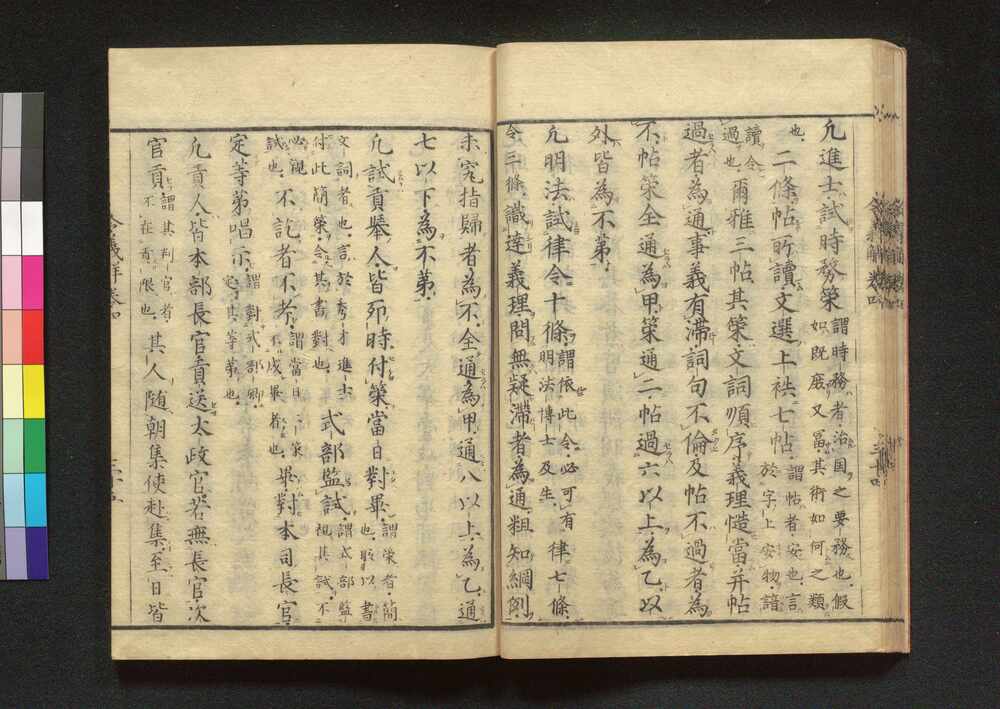 凢進士試時務策謂時務者治国之要務也假
如既廢又冨其術如何之類
也二條帖所讀文選上袟七帖謂帖者安也言
於字上安物諳
讀令
過也爾雅三帖其策文詞順序義理慥當并帖
過者為通事義有滞詞句不倫及帖不過者為
不帖策全通為甲策通二帖過六以上為乙以
外皆為不第
凢明法試律令十條謂依此令必可有律七條
明法博士及生
令三條識達義理問無疑滞者為通粗知綱例
未究指歸者為不全通為甲通八以上為乙通
七以下為不第
凢試貢擧人皆夘時付策當日對畢謂策者簡
也取以書
文詞者也言於秀才進士
付此簡策令其書對也式部監試謂式部監
視其試不
必親
試也不訖者不考謂當日之策
不成畢者也畢對本司長官
定等第唱示謂對式部卿
定其等第也
凢貢人皆本部長官貢送太政官若無長官次
官貢謂其判官者
不在貢限也其人随朝集使赴集至日皆
令義解卷四
三十四